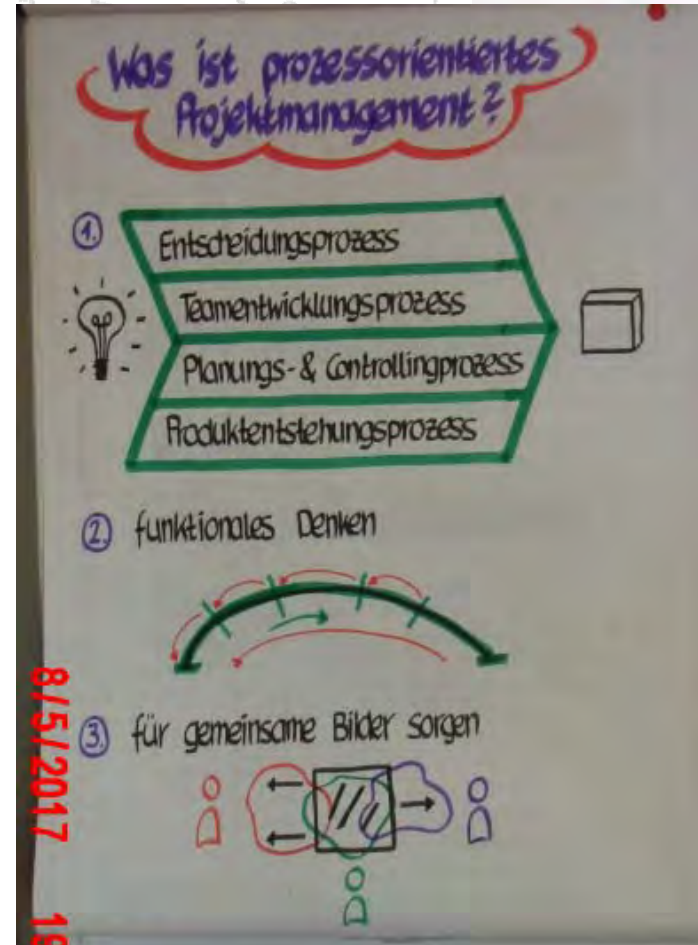 Was ist prozessorientiertes
Projektmanagement?
1.
Entscheidungsprozess
Teamentwicklungsprozess
Planungs- & Controllingprozess
Produktentstehungsprozess
2. funktionales Denken
3. für gemeinsame Bilder sorgen
8/5/2017